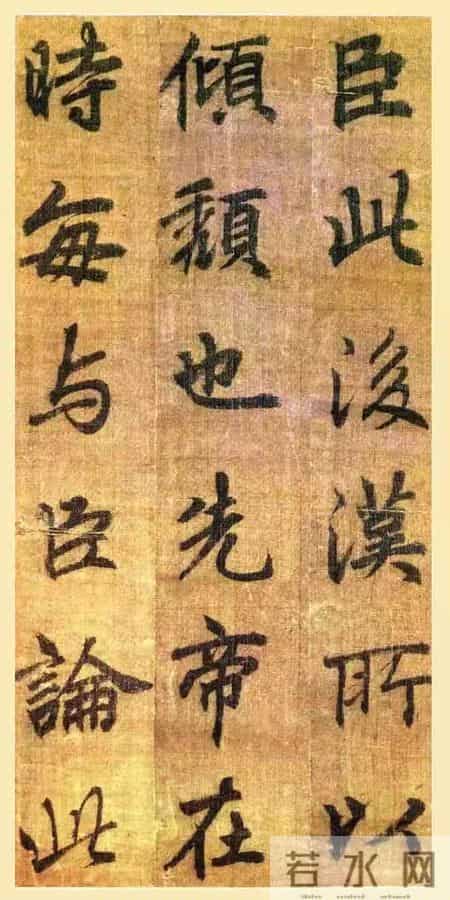 臣此後漢所以
傾頹也先帝在
時每与臣論此
若水网